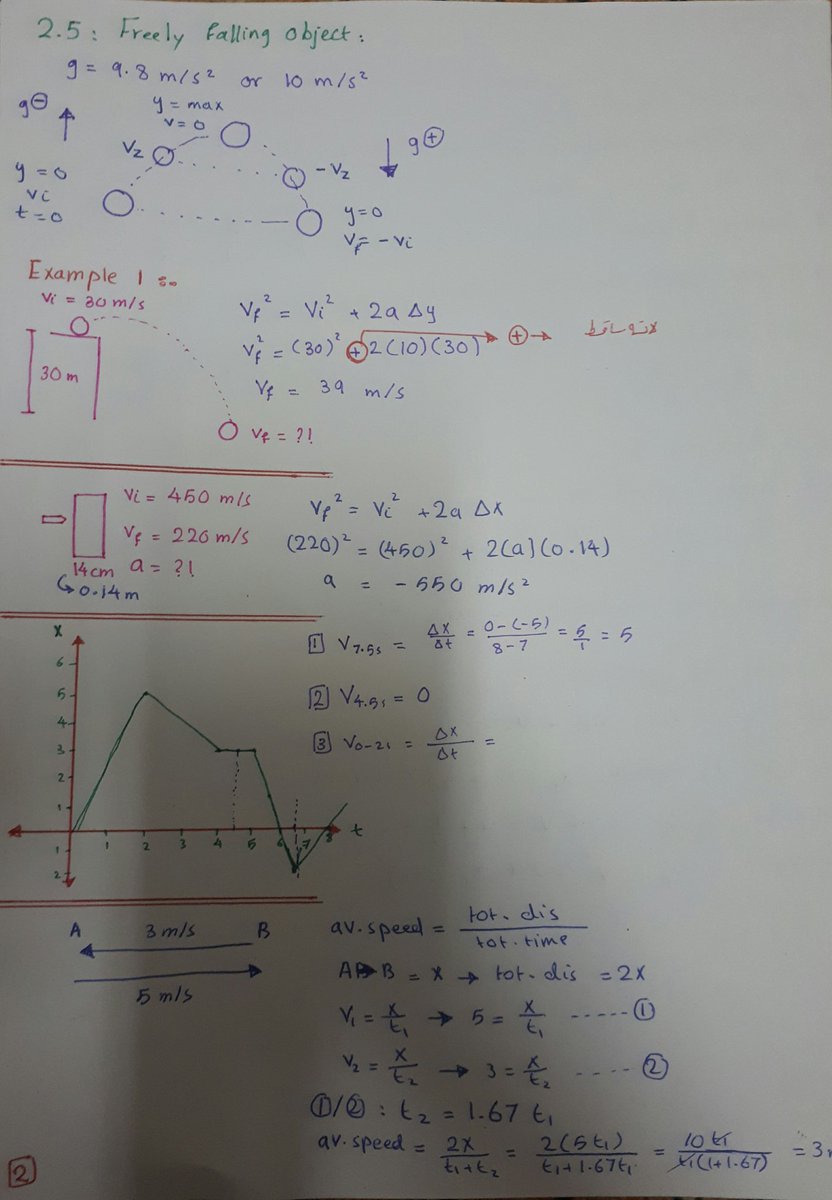 2.5: Freely falling object:
g = 9.8 m/s² or 10 m/s²
g⊖
y = max
v = 0
g⊕
V2
- V2
y = 0
Vi
t = 0
y = 0
Vf = - Vi
Example 1 :
Vi = 30 m/s
30 m
Vf = ?!
Vf² = Vi² + 2a Δy
Vf² = (30)² + 2(10)(30) ⊕→
Vf = 39 m/s
Vi = 450 m/s
Vf = 220 m/s
a = ?!
14cm
0.14m
Vf² = Vi² + 2a Δx
(220)² = (450)² + 2(a)(0.14)
a = - 550 m/s²
x
6
5
4
3
2
1
1
2
1 2 3 4 5 6 7 8 t
1 V7.5s = Δx/Δt = 0-(-5)/8-7 = 5/1 = 5
2 V4.5s = 0
3 V0-2s = Δx/Δt =
A 3 m/s B
5 m/s
av.speed = tot. dis / tot. time
A→B = x → tot. dis = 2x
V1 = x/t1 → 5 = x/t1 ------①
V2 = x/t2 → 3 = x/t2 ----②
①/② : t2 = 1.67 t1
av.speed = 2x/t1+t2 = 2(5t1)/t1+1.67t1 = 10t1/t1(1+1.67) = 3
2